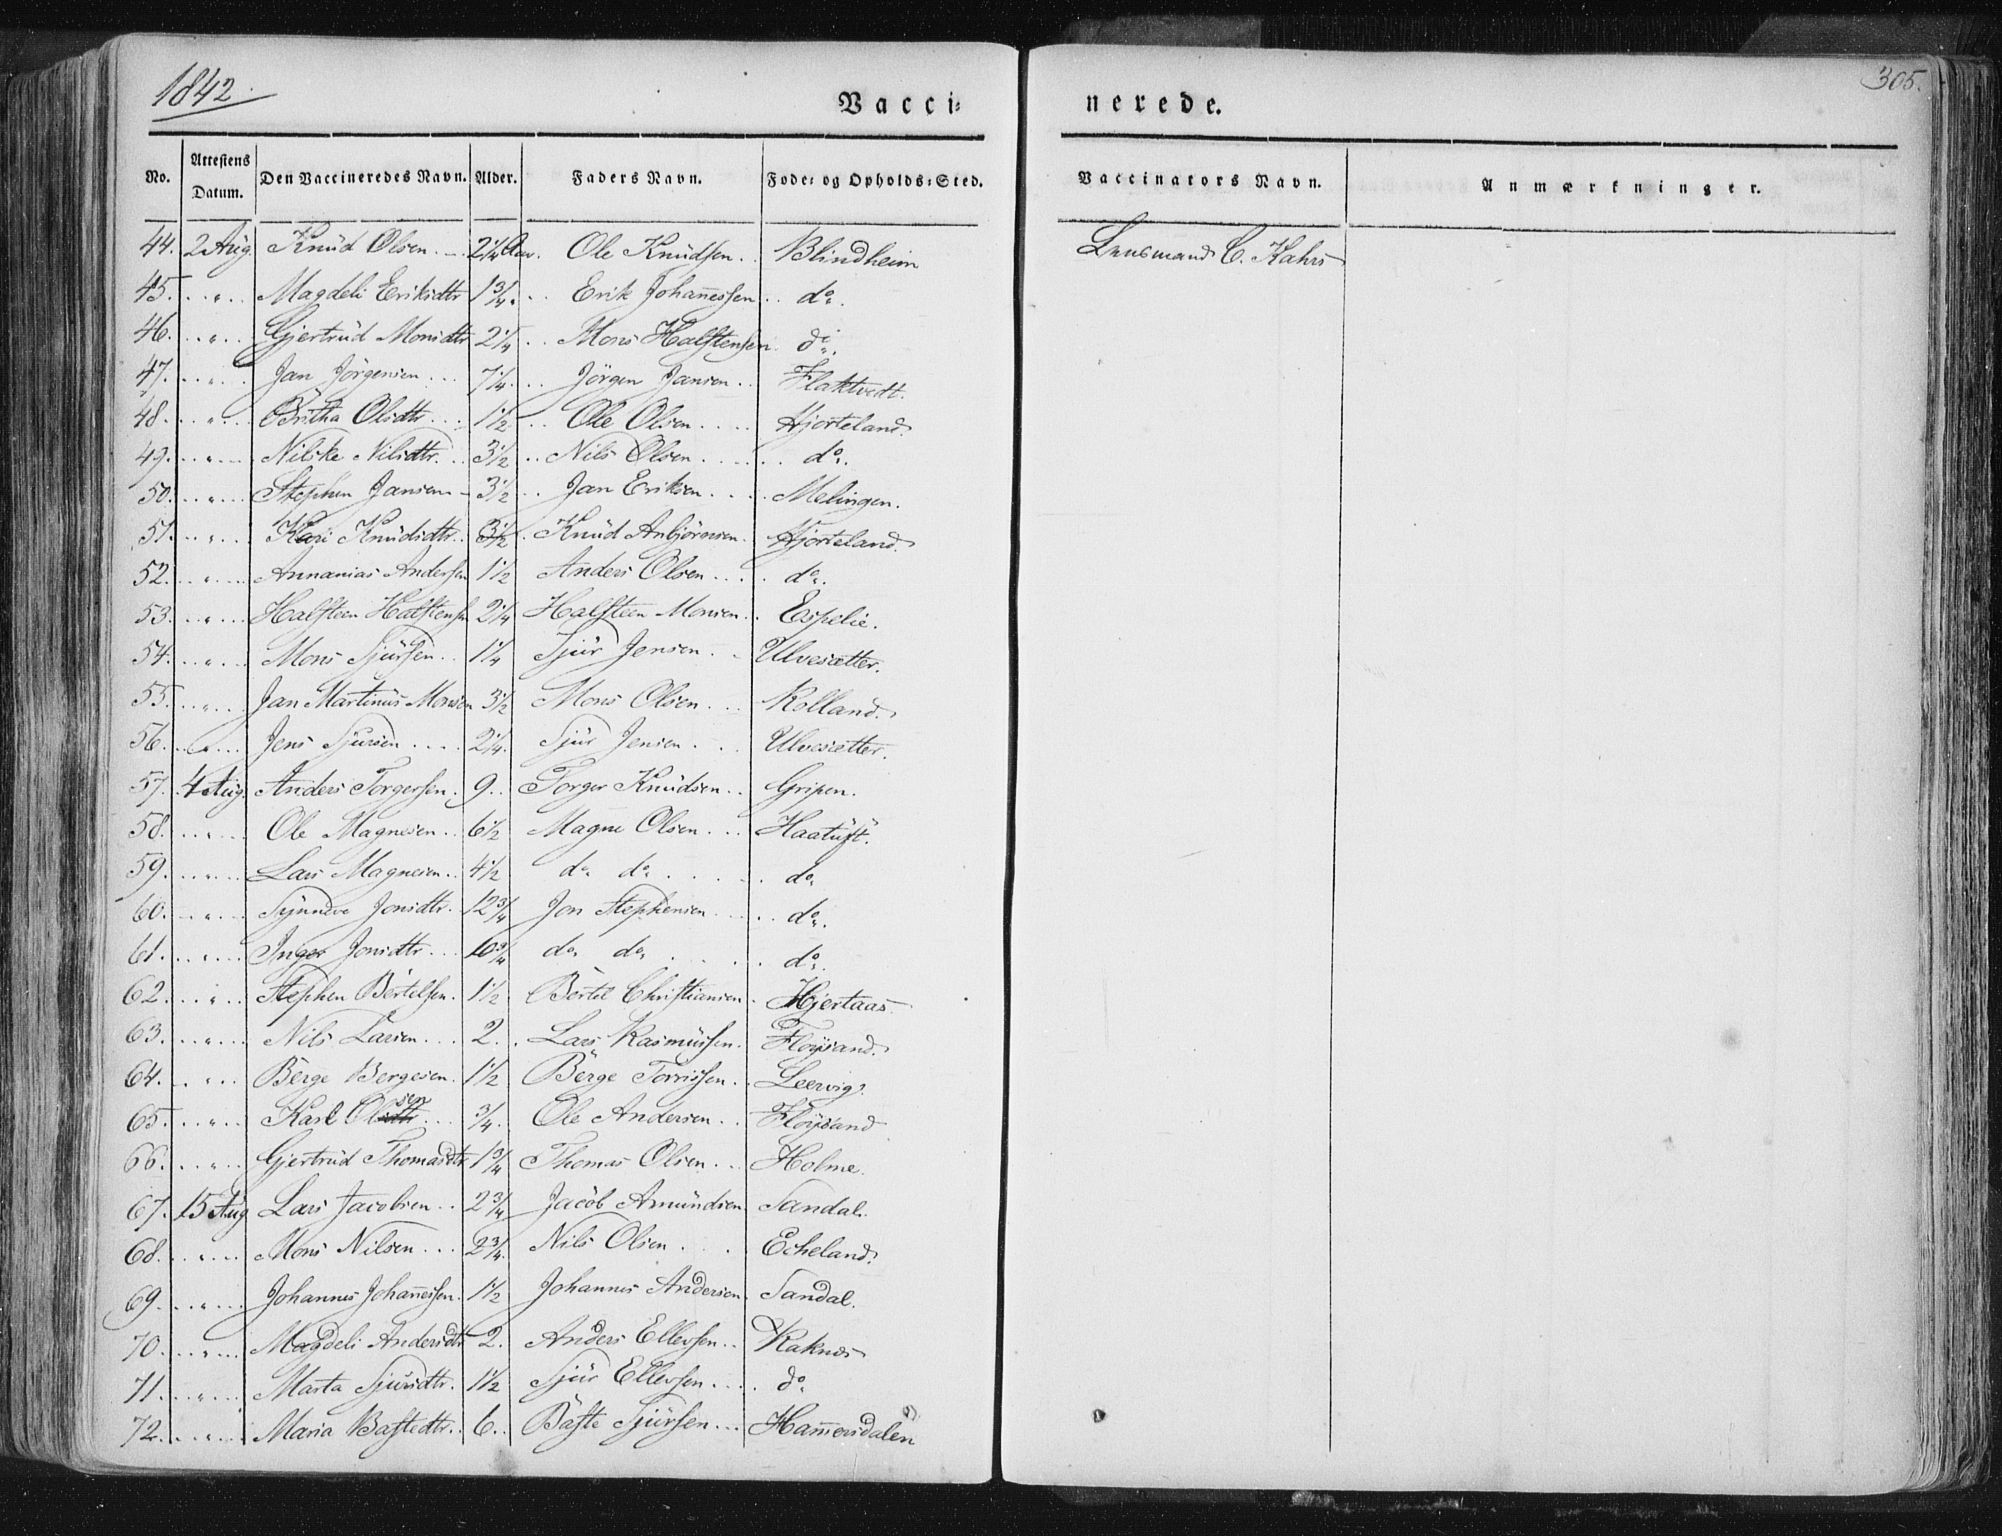 1842.
Vacci- nerede. 305.
No. Attestens Datum. Den Vaccineredes Navn. Alder. Faders Navn. Føde- og Opholds-Sted. Vaccinators Navn. Anmærkninger.
44. 2 Aug. Knud Olsen. 2 1/4 Aar. Ole Knudsen. Blindheim Lensmand C. Kahrs
45. " Magdeli Eriksdtr 1 3/4. Erik Johannessen do.
46. " Gjertrud Monsdtr 2 1/4 Mons Halfstensen do.
47. " Jan Jörgensen 7 1/4. Jörgen Jansen Flaktvedt.
48. " Britha Olsdtr. 1 1/2 Ole Olsen Hjorteland.
49. " Nilske Nilsdtr. 3 1/2 Nils Olsen do.
50. " Stephen Jansen 3 1/2 Jan Eriksen Melingen.
51. " Kari Knudsdtr. 3 1/2 Knud Anbjörnsen Hjorteland.
52. " Annanias Andersen 1 1/2 Anders Olsen do.
53. " Halfsteen Halfstensen 2 1/4 Halfsteen Monsen Espelie.
54. " Mons Sjursen 1 1/4 Sjur Jensen Ulvesætter.
55. " Jan Martinus Monsen 3 1/2 Mons Olsen Rolland.
56. " Jens Sjursen 2 1/4. Sjur Jensen Ulvesætter.
57. 4 Aug. Anders Torgersen. 9. Torger Knudsen Gripen.
58. " Ole Magnesen 6 1/2 Magne Olsen Haatuft.
59. " Lars Magnesen 4 1/2 do do do
60. " Synneve Jonsdtr. 12 3/4 Jon Stephensen do.
61. " Inger Jonsdtr. 10 3/4 do do do.
62. " Stephen Bertelsen. 1 1/2 Bertel Christiansen Hjertaas
63. " Nils Larsen 2. Lars Rasmussen. Floysand.
64. " Berge Bergesen. 1 1/2 Berge Torrissen Leervig.
65. " Karl Olsen 3/4. Ole Andersen Floysand
66. " Gjertrud Thomasdtr 1 3/4 Thomas Olsen Holme.
67. 15 Aug Lars Jacobsen 2 3/4 Jacob Amundsen Sandal.
68. " Mons Nilsen 2 3/4. Nils Olsen Echeland.
69. " Johannes Johannessen. 1 1/2 Johannes Andersen Sandal.
70. " Magdeli Andersdtr 2. Anders Ellevsen Raknes
71. " Marta Sjursdtr. 1 1/2 Sjur Ellevsen do
72. " Maria Bastedtr. 6. Baste Sjursen Hammersdalen